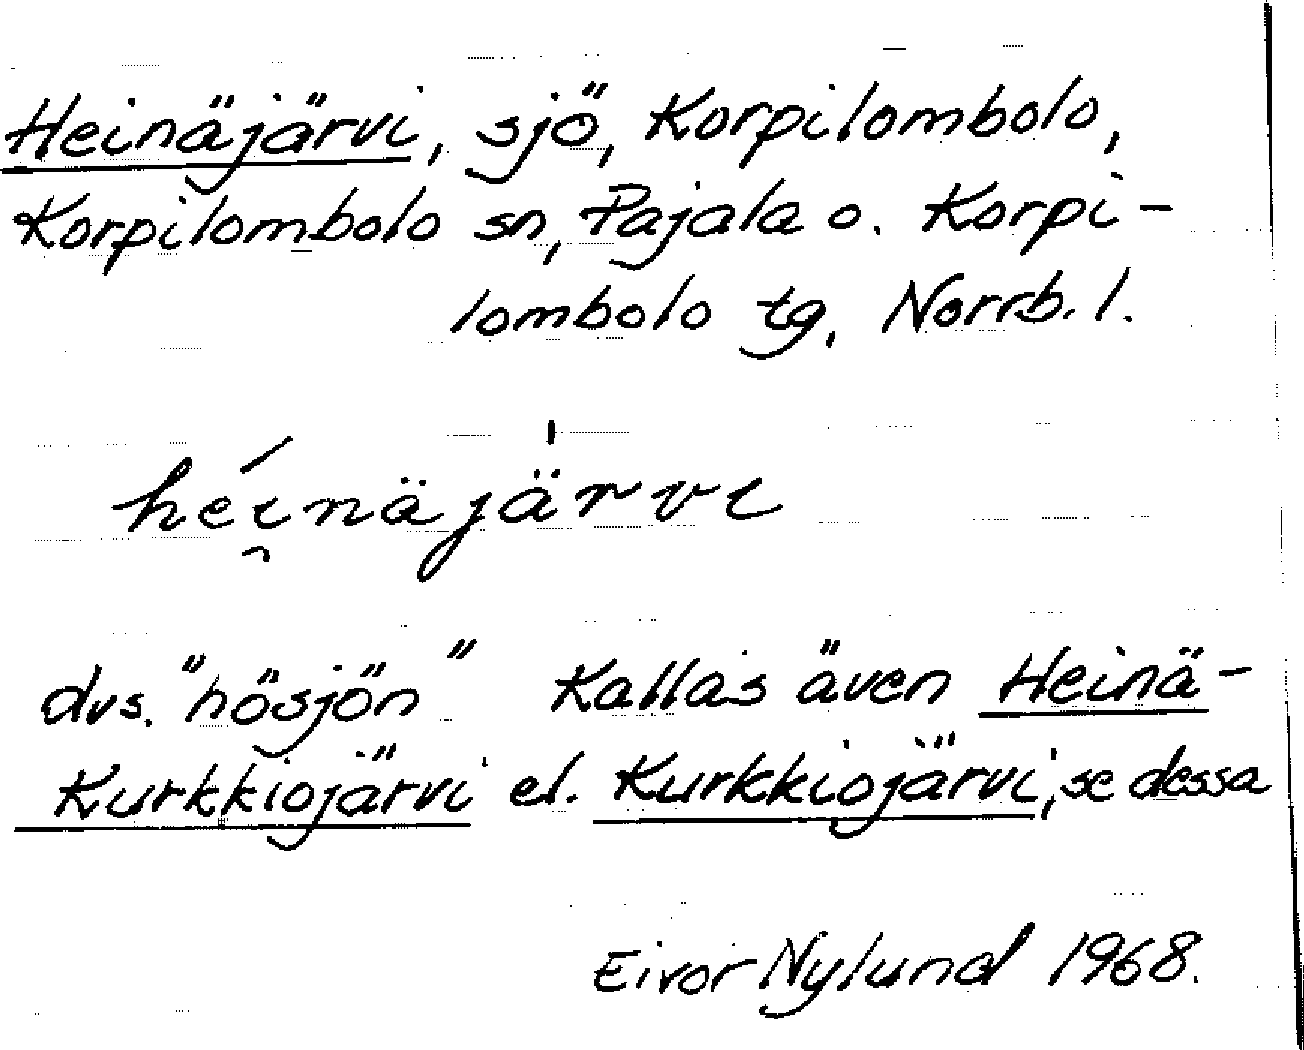 Heinäjärvi, sjö, Korpilombolo,
Korpilombolo sn, Pajala o. Korpi-
lombolo tg, Norrb. l.
héi̯näjä̍rvi
dvs. "hösjön" Kallas även Heinä-
Kurkkiojärvi el. Kurkkiojärvi, se dessa
Eivor Nylund 1968.